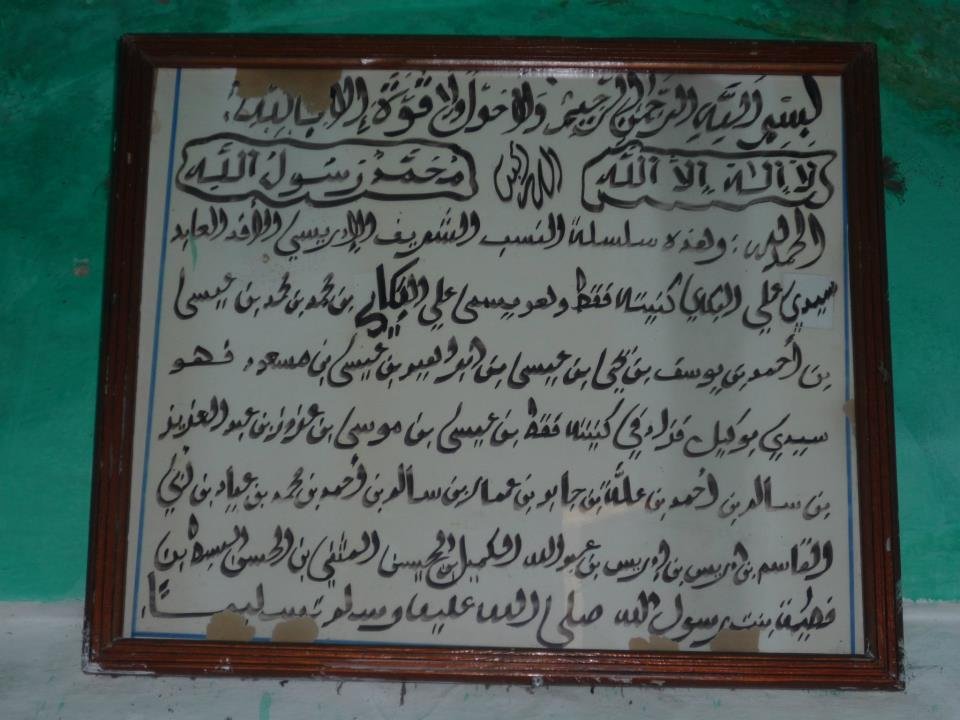 بسم الله الرحمن الرحيم ولا حول ولا قوة إلا بالله
لا إله إلا الله الله أكبر محمد رسول الله
الحمد لله: وهذه سلسلة النسب الشريف الإدريسي العابد
سيدي علي البكاي كنيته فقط وهو يسمى علي البكاي بن محمد بن محمد بن عيسى
بن أحمد بن يوسف بن يحي بن عيسى بن ابو العيد بن عيسى بن مسعود فهو
سيدي بوكيل في كنيته فقط بن عيسى بن موسى بن عزوز بن عبد العزيز
بن سالم بن أحمد بن علة بن جابر بن عمار بن سالم بن أحمد بن محمد بن عياد بن
القاسم بن ادريس بن إدريس بن عبد الله الكميل بن الحسن المثنى بن الحسن السبط بن
فاطمة بنت رسول الله صلى الله عليه وسلم تسليما